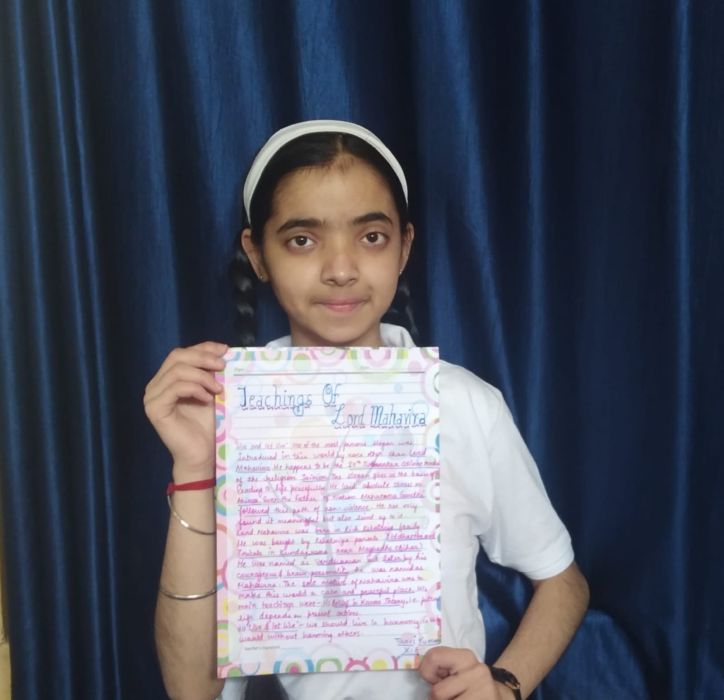 Teachings Of
Lord Mahavira
"Live and let live" One of the most famous slogan was
introduced in this world by none other than Lord
Mahavira. He happens to be the 24th Tirthankar
of the religion Jainism. The slogan gives us the basic
to life peacefully. He laid absolute stress on
Ahimsa. Even the Father of Nation Mahatma Gandhi
followed this path of non-violence. He not only
found it meaningful but also lived up to it.
Lord Mahavira was born in rich kshatriya family.
He was bought by kshatriya parents Siddhartha and
Trishala in Kundagrama near Magadha (Bihar)
He was named as Vardhamana but later by his
courageous & brave personality he was named as
Mahavira. The sole motive of Mahavira was to
make this world a calm and peaceful place. His
main teachings were - Belief in Karma Theory, i.e. future
life depends on present actions.
"Live & let live" - we should live in harmony in the
world without harming others.
Teacher's Signature